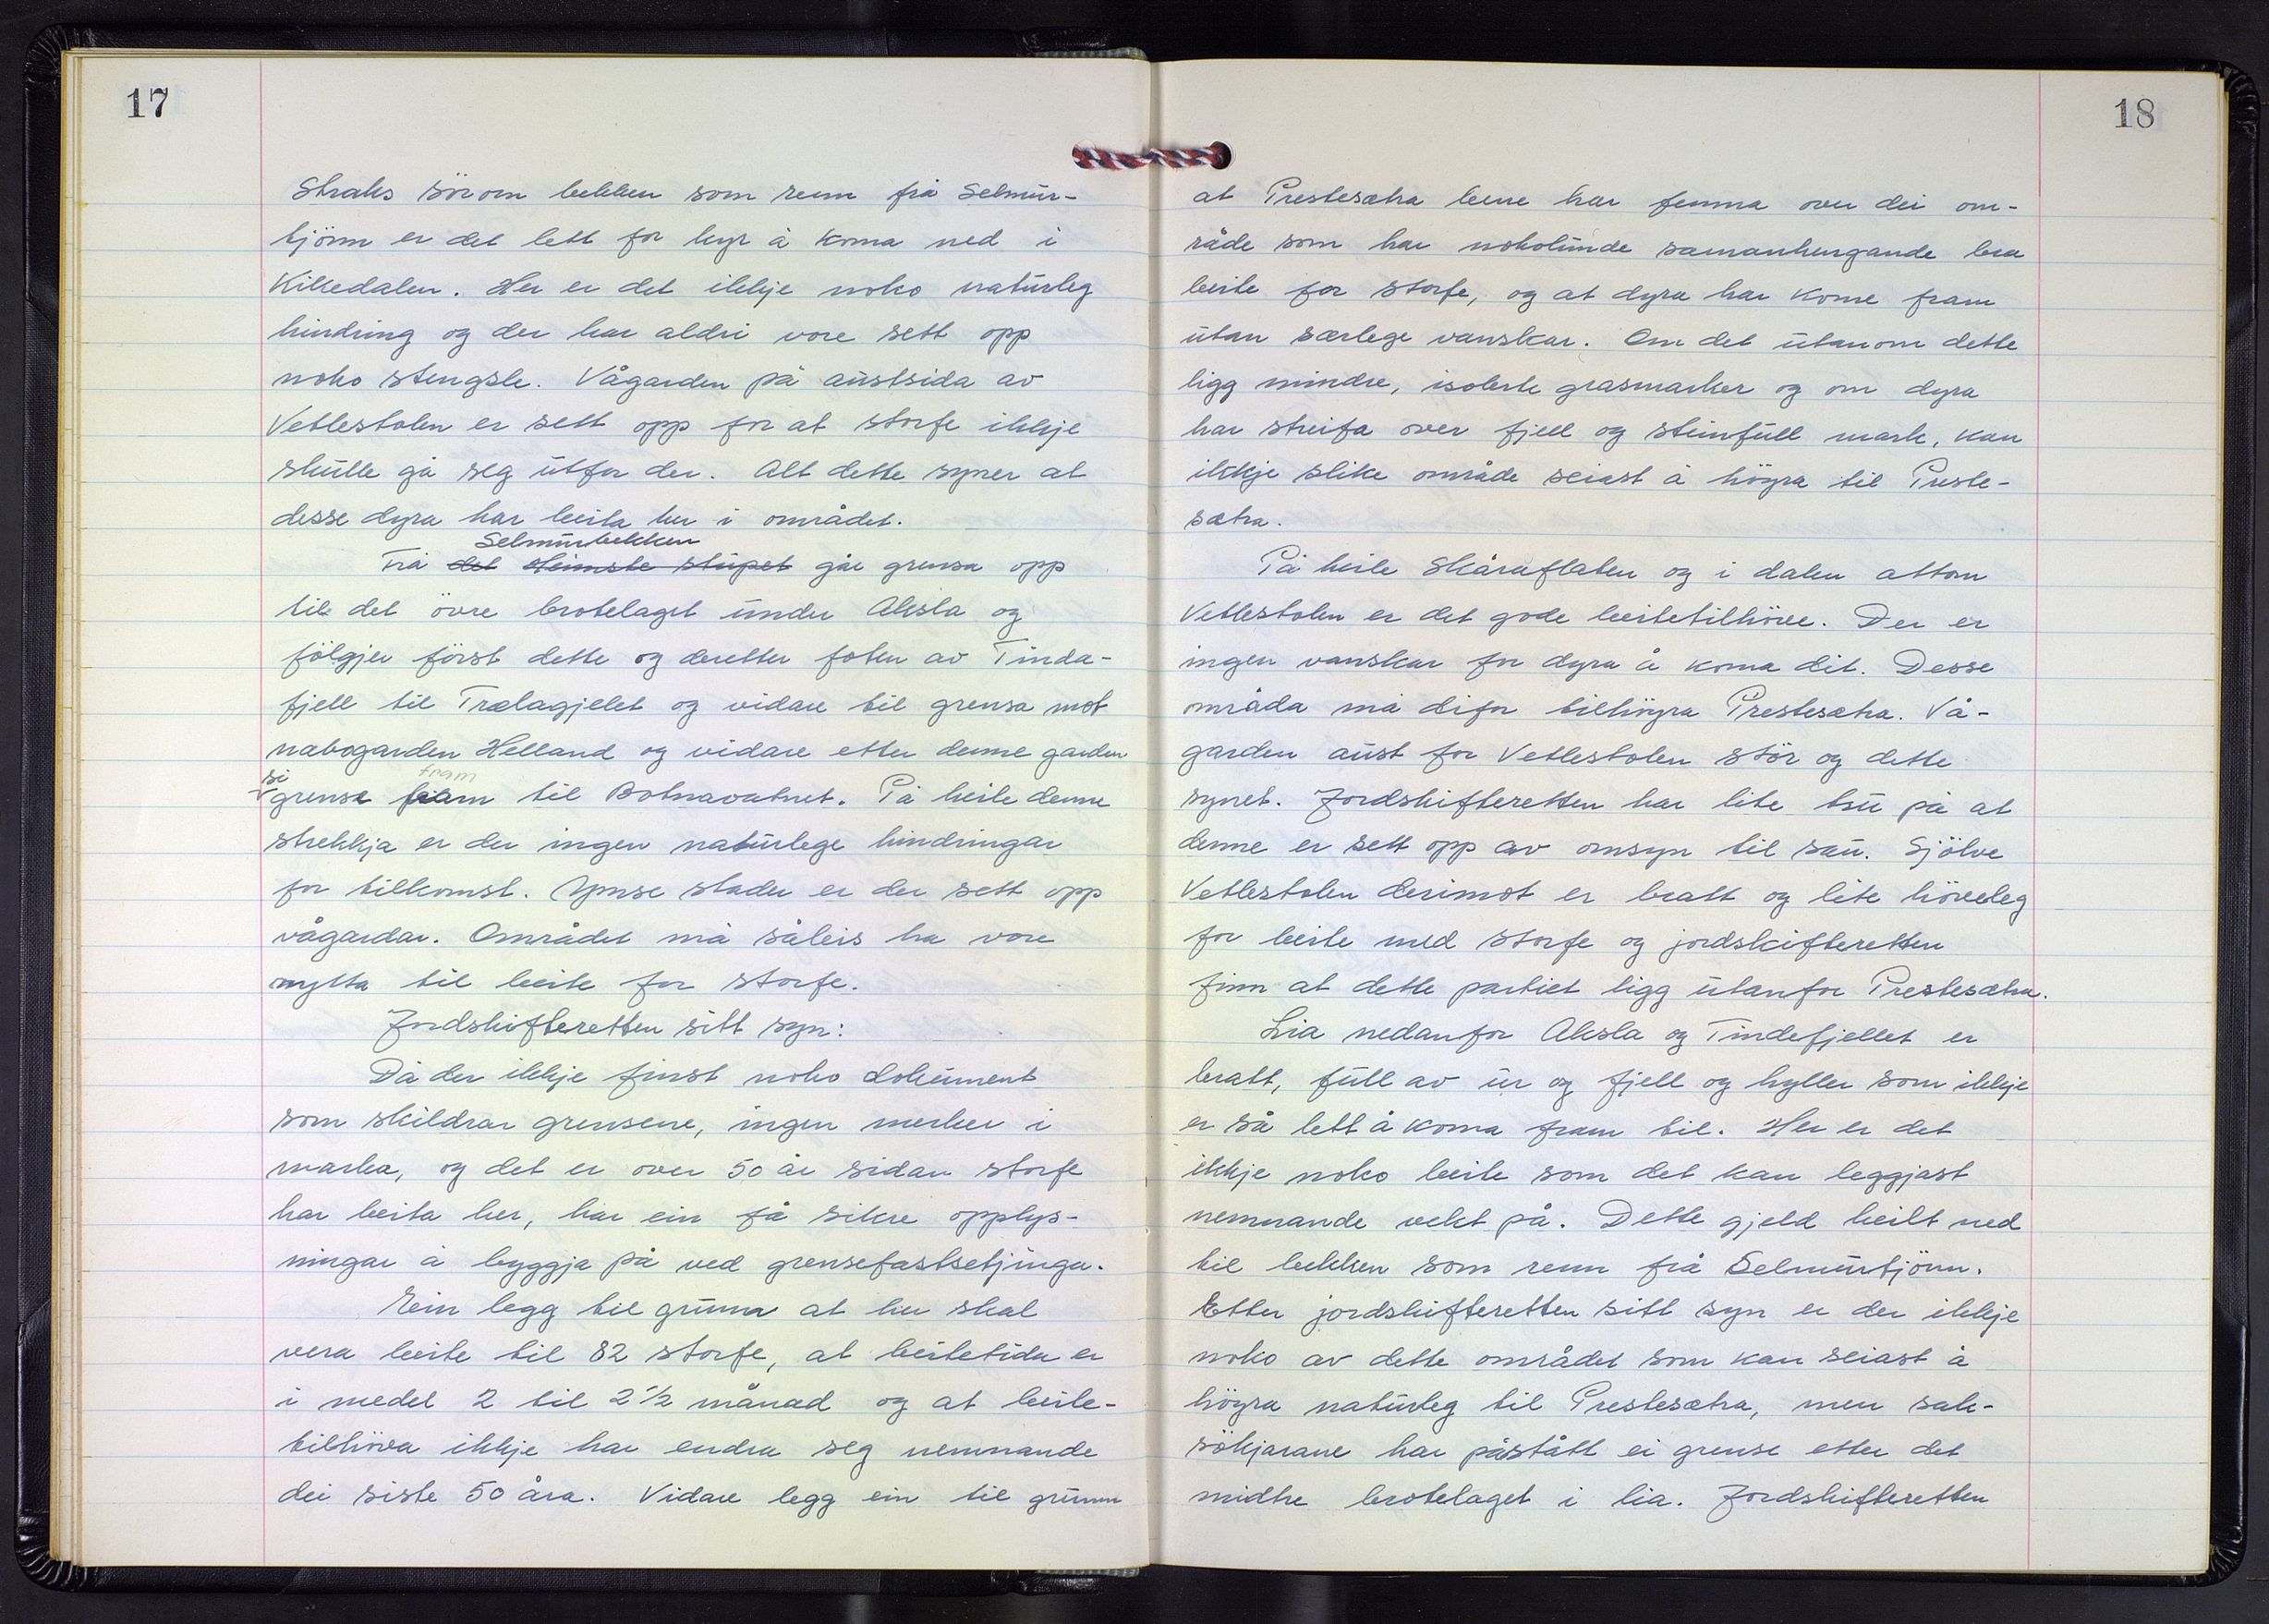 17
Straks sörom bekken som renn frå Selmur-
tjönn er det lett for kyr å koma ned i
Kilsedalen. Her er det ikkje noko naturleg
hindring og der har aldri vore sett opp
noko stengsle. Vågarden på austsida av
Vetlestolen er sett opp for at storfe ikkje
skulle gå seg utfor der. Alt dette syner at
desse dyra har beita her i området.
Selmurbekken
Frå det heimste stupet går grensa opp
til det övre brotelaget under Aksla og
fölgjer först dette og deretter foten av Tinda-
fjell til Trælagjelet og vidare til grensa mot
nabogarden Helland og vidare etter denne garden
si fram
grense fram til Botnavatnet. På heile denne
strekkja er der ingen naturlege hindringar
for tilkomst. Ymse stader er der sett opp
vågardar. Området må såleis ha vore
nytta til beite for storfe.
Jordskifteretten sitt syn:
Då der ikkje finst noko dokument
som skildrar grensene, ingen merker i
marka, og det er over 50 år sidan storfe
har beita her, har ein få sikre opplys-
ningar å byggja på ved grensefastsetjinga.
Ein legg til grunn at her skal
vera beite til 82 storfe, at beitetida er
i medel 2 til 2 1/2 månad og at beite-
tilhöva ikkje har endra seg nemnande
dei siste 50 åra. Vidare legg ein til grunn
18
at Prestesætra berre har femna over dei om-
råde som har nokolunde samanhengande bra
beite for storfe, og at dyra har kome fram
utan særlege vanskar. Om det utanom dette
ligg mindre, isolerte grasmarker og om dyra
har streifa over fjell og steinfull mark, kan
ikkje slike område seiast å höyra til Preste-
sætra.
På heile Skåraflaten og i dalen attom
Vetlestolen er det gode beitetilhöve. Der er
ingen vanskar for dyra å koma dit. Desse
områda må difor tilhöyra Prestesætra. Vå-
garden aust for Vetlestolen stör og dette
synet. Jordskifteretten har lite tru på at
denne er sett opp av omsyn til sau. Sjölve
Vetlestolen derimot er bratt og lite höveleg
for beite med storfe og jordskifteretten
finn at dette partiet ligg utanfor Prestesætra.
Lia nedanfor Aksla og Tindefjellet er
bratt, full av ur og fjell og hyller som ikkje
er så lett å koma fram til. Her er det
ikkje noko beite som det kan leggjast
nemnande vekt på. Dette gjeld heilt ned
til bekken som renn frå Selmurtjönn.
Etter jordskifteretten sitt syn er der ikkje
noko av dette området som kan seiast å
höyra naturleg til Prestesætra, men sak-
sökjarane har påstått ei grense etter det
midtre brotelaget i lia. Jordskifteretten